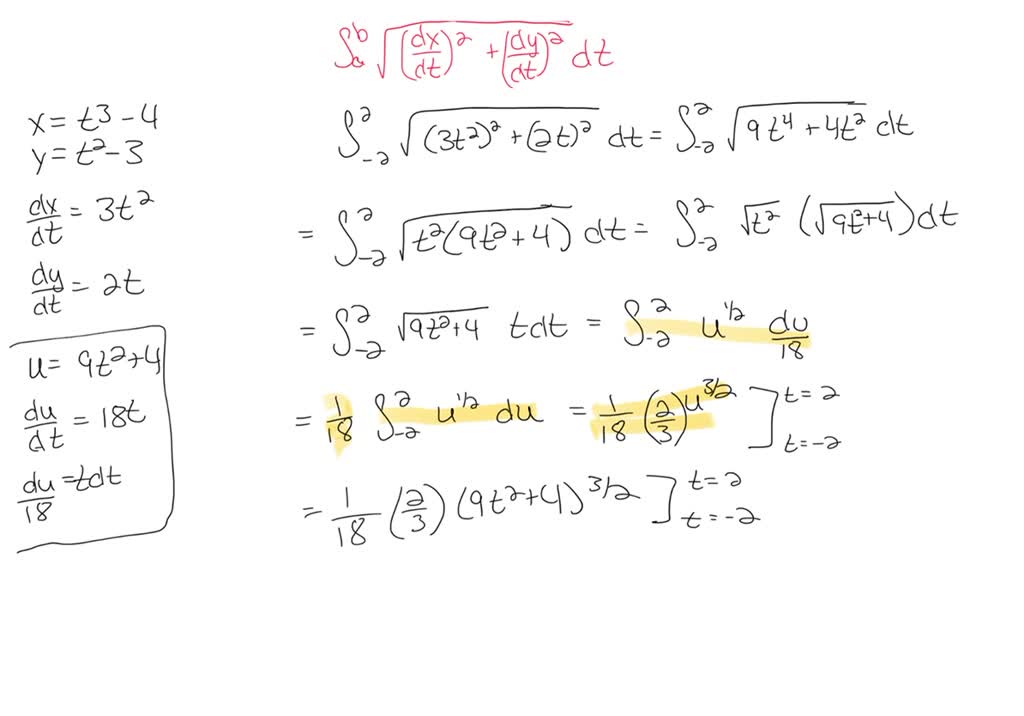 ∫_a^b √((dx/dt)² + (dy/dt)²) dt
x = t³ - 4
y = t² - 3
dx/dt = 3t²
dy/dt = 2t
u = 9t² + 4
du/dt = 18t
du/18 = t dt
∫_-2^2 √((3t²)² + (2t)²) dt = ∫_-2^2 √(9t⁴ + 4t²) dt
= ∫_-2^2 √(t²(9t² + 4)) dt = ∫_-2^2 √t² (√(9t² + 4)) dt
= ∫_-2^2 √(9t² + 4) t dt = ∫_-2^2 u^1/2 du/18
= 1/18 ∫_-2^2 u^1/2 du = 1/18 (2/3) u^3/2 ] t = 2 t = -2
= 1/18 (2/3) (9t² + 4)^3/2 ] t = 2 t = -2